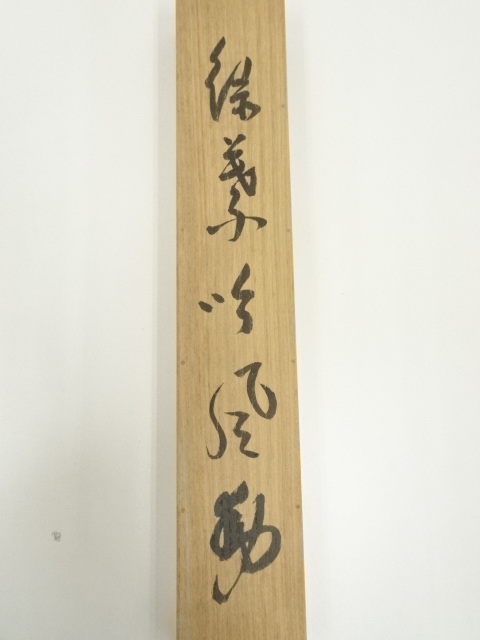 緑葉吟風動